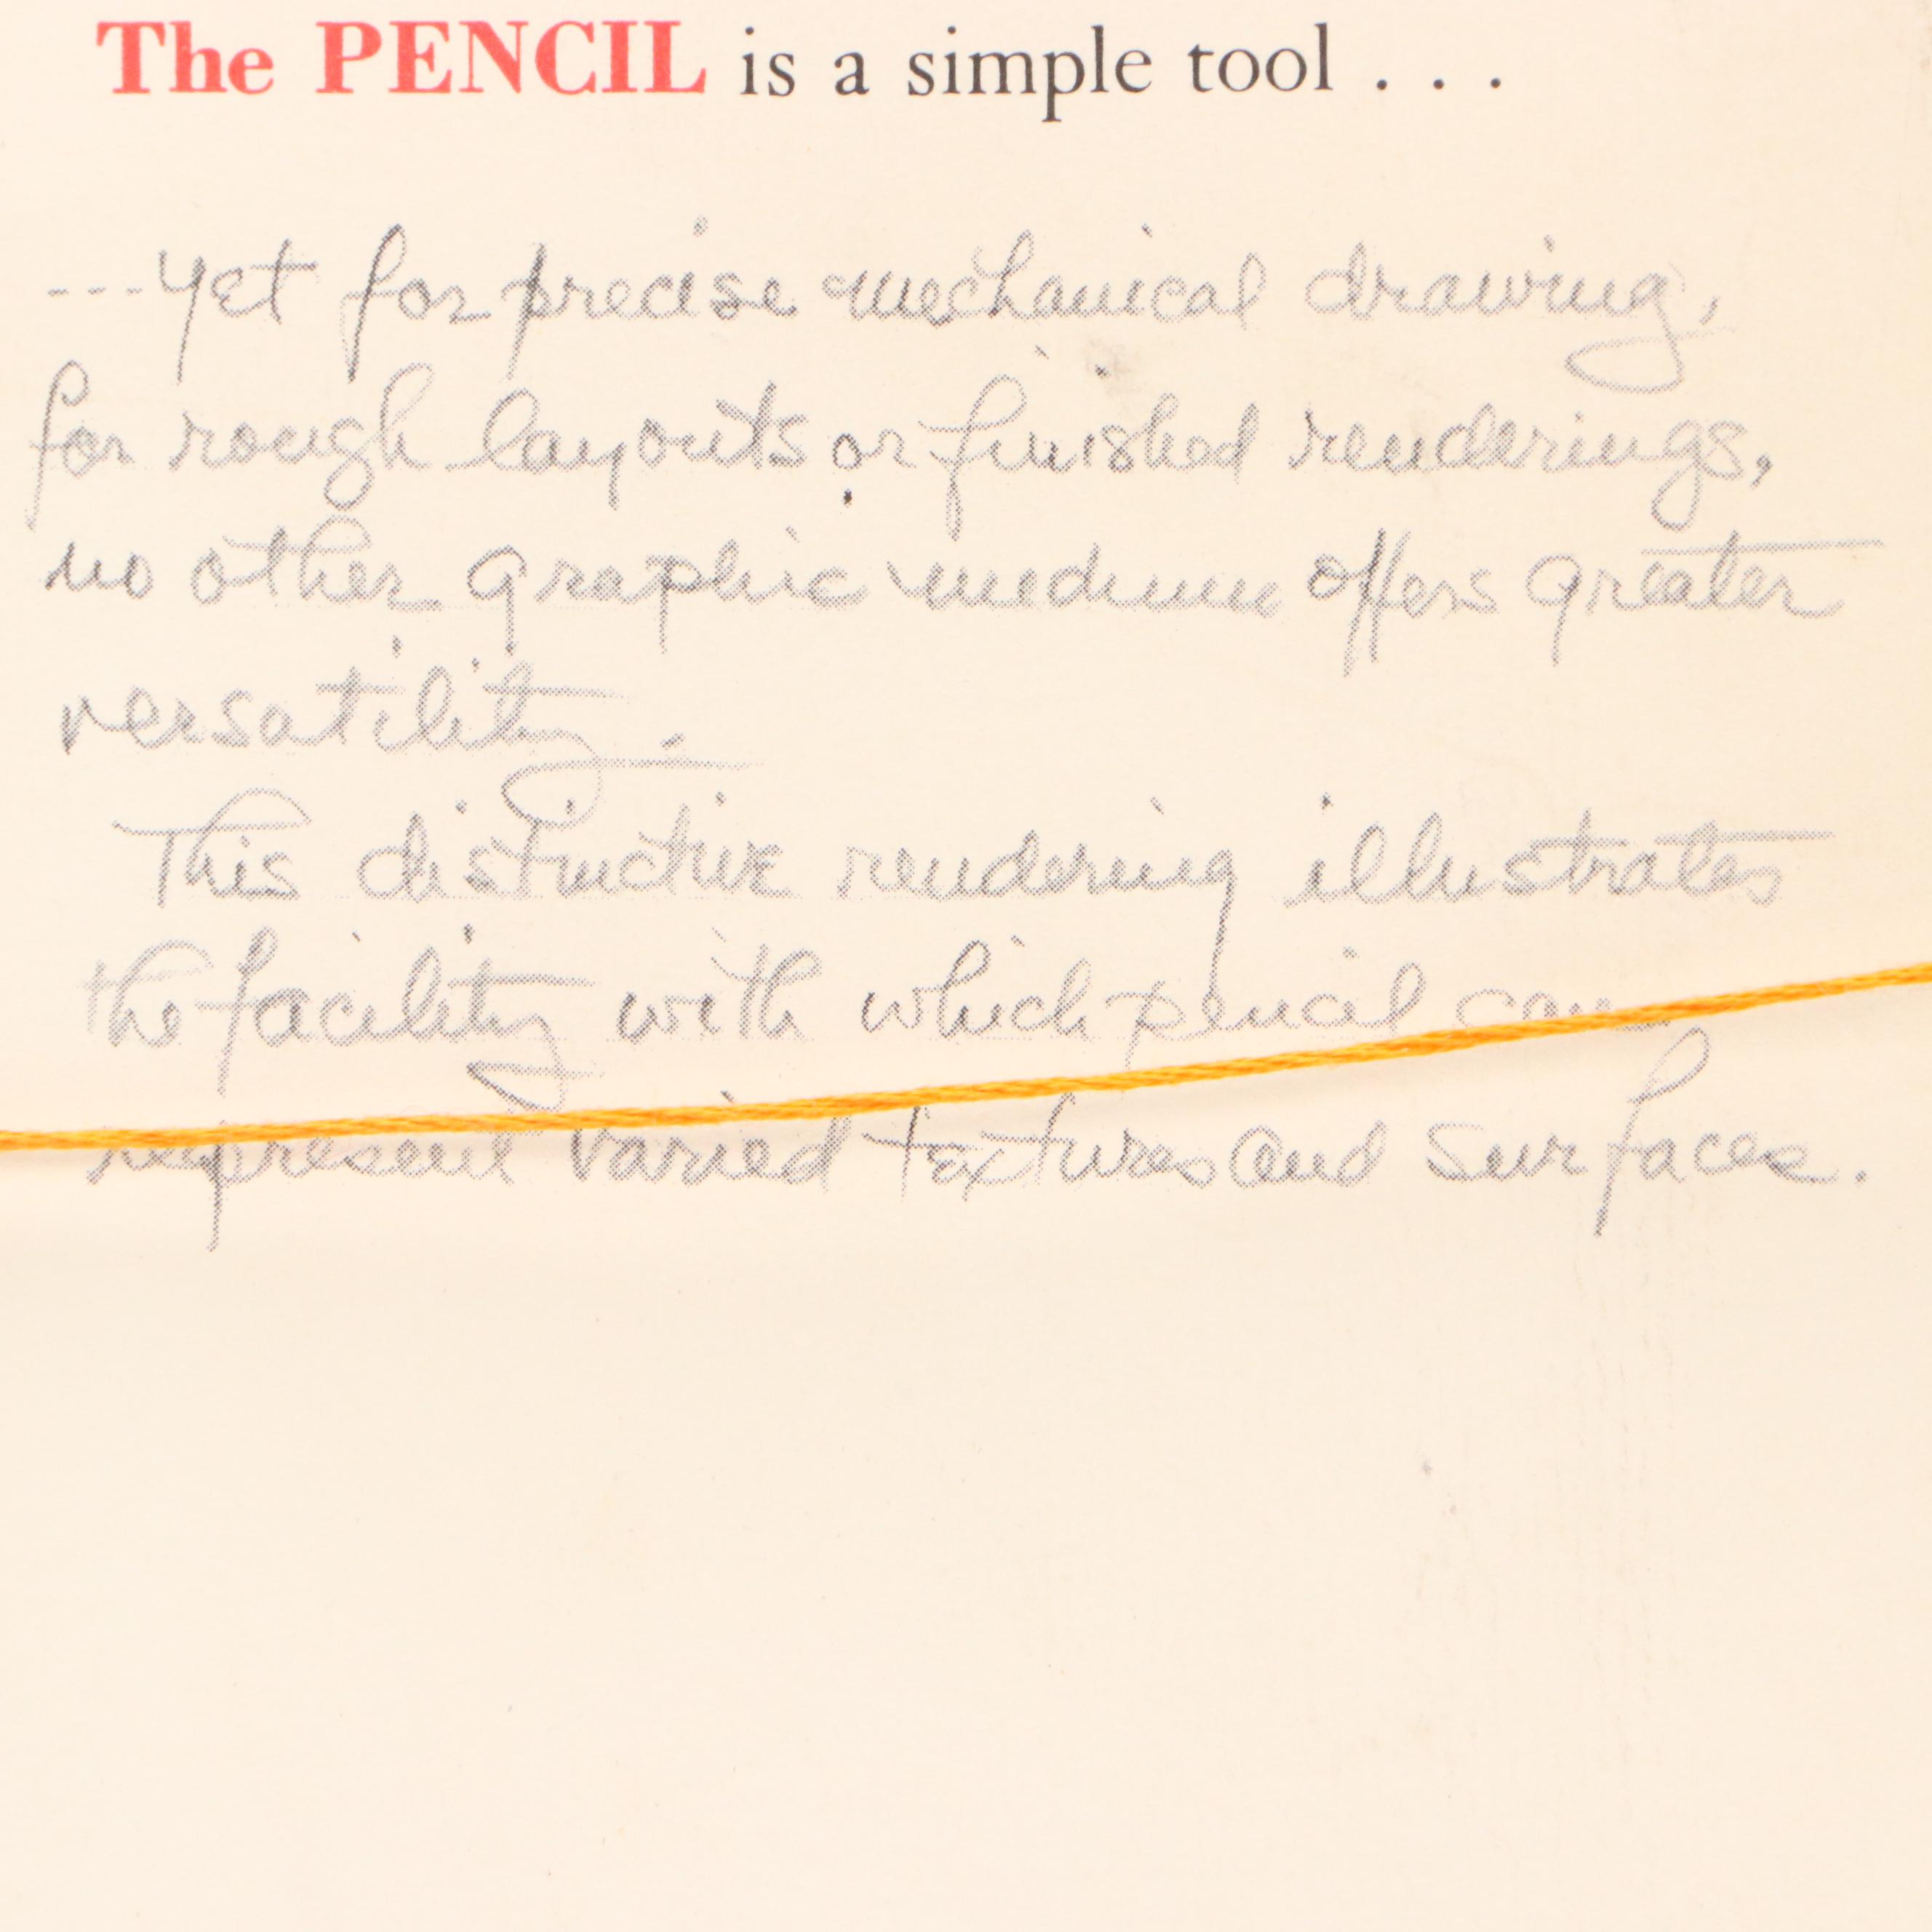 The PENCIL is a simple tool . . .
---yet for precise mechanical drawing,
for rough layouts or finished renderings,
no other graphic medium offers greater
versatility.
This distinctive rendering illustrates
the facility with which pencil can
represent varied textures and surfaces.